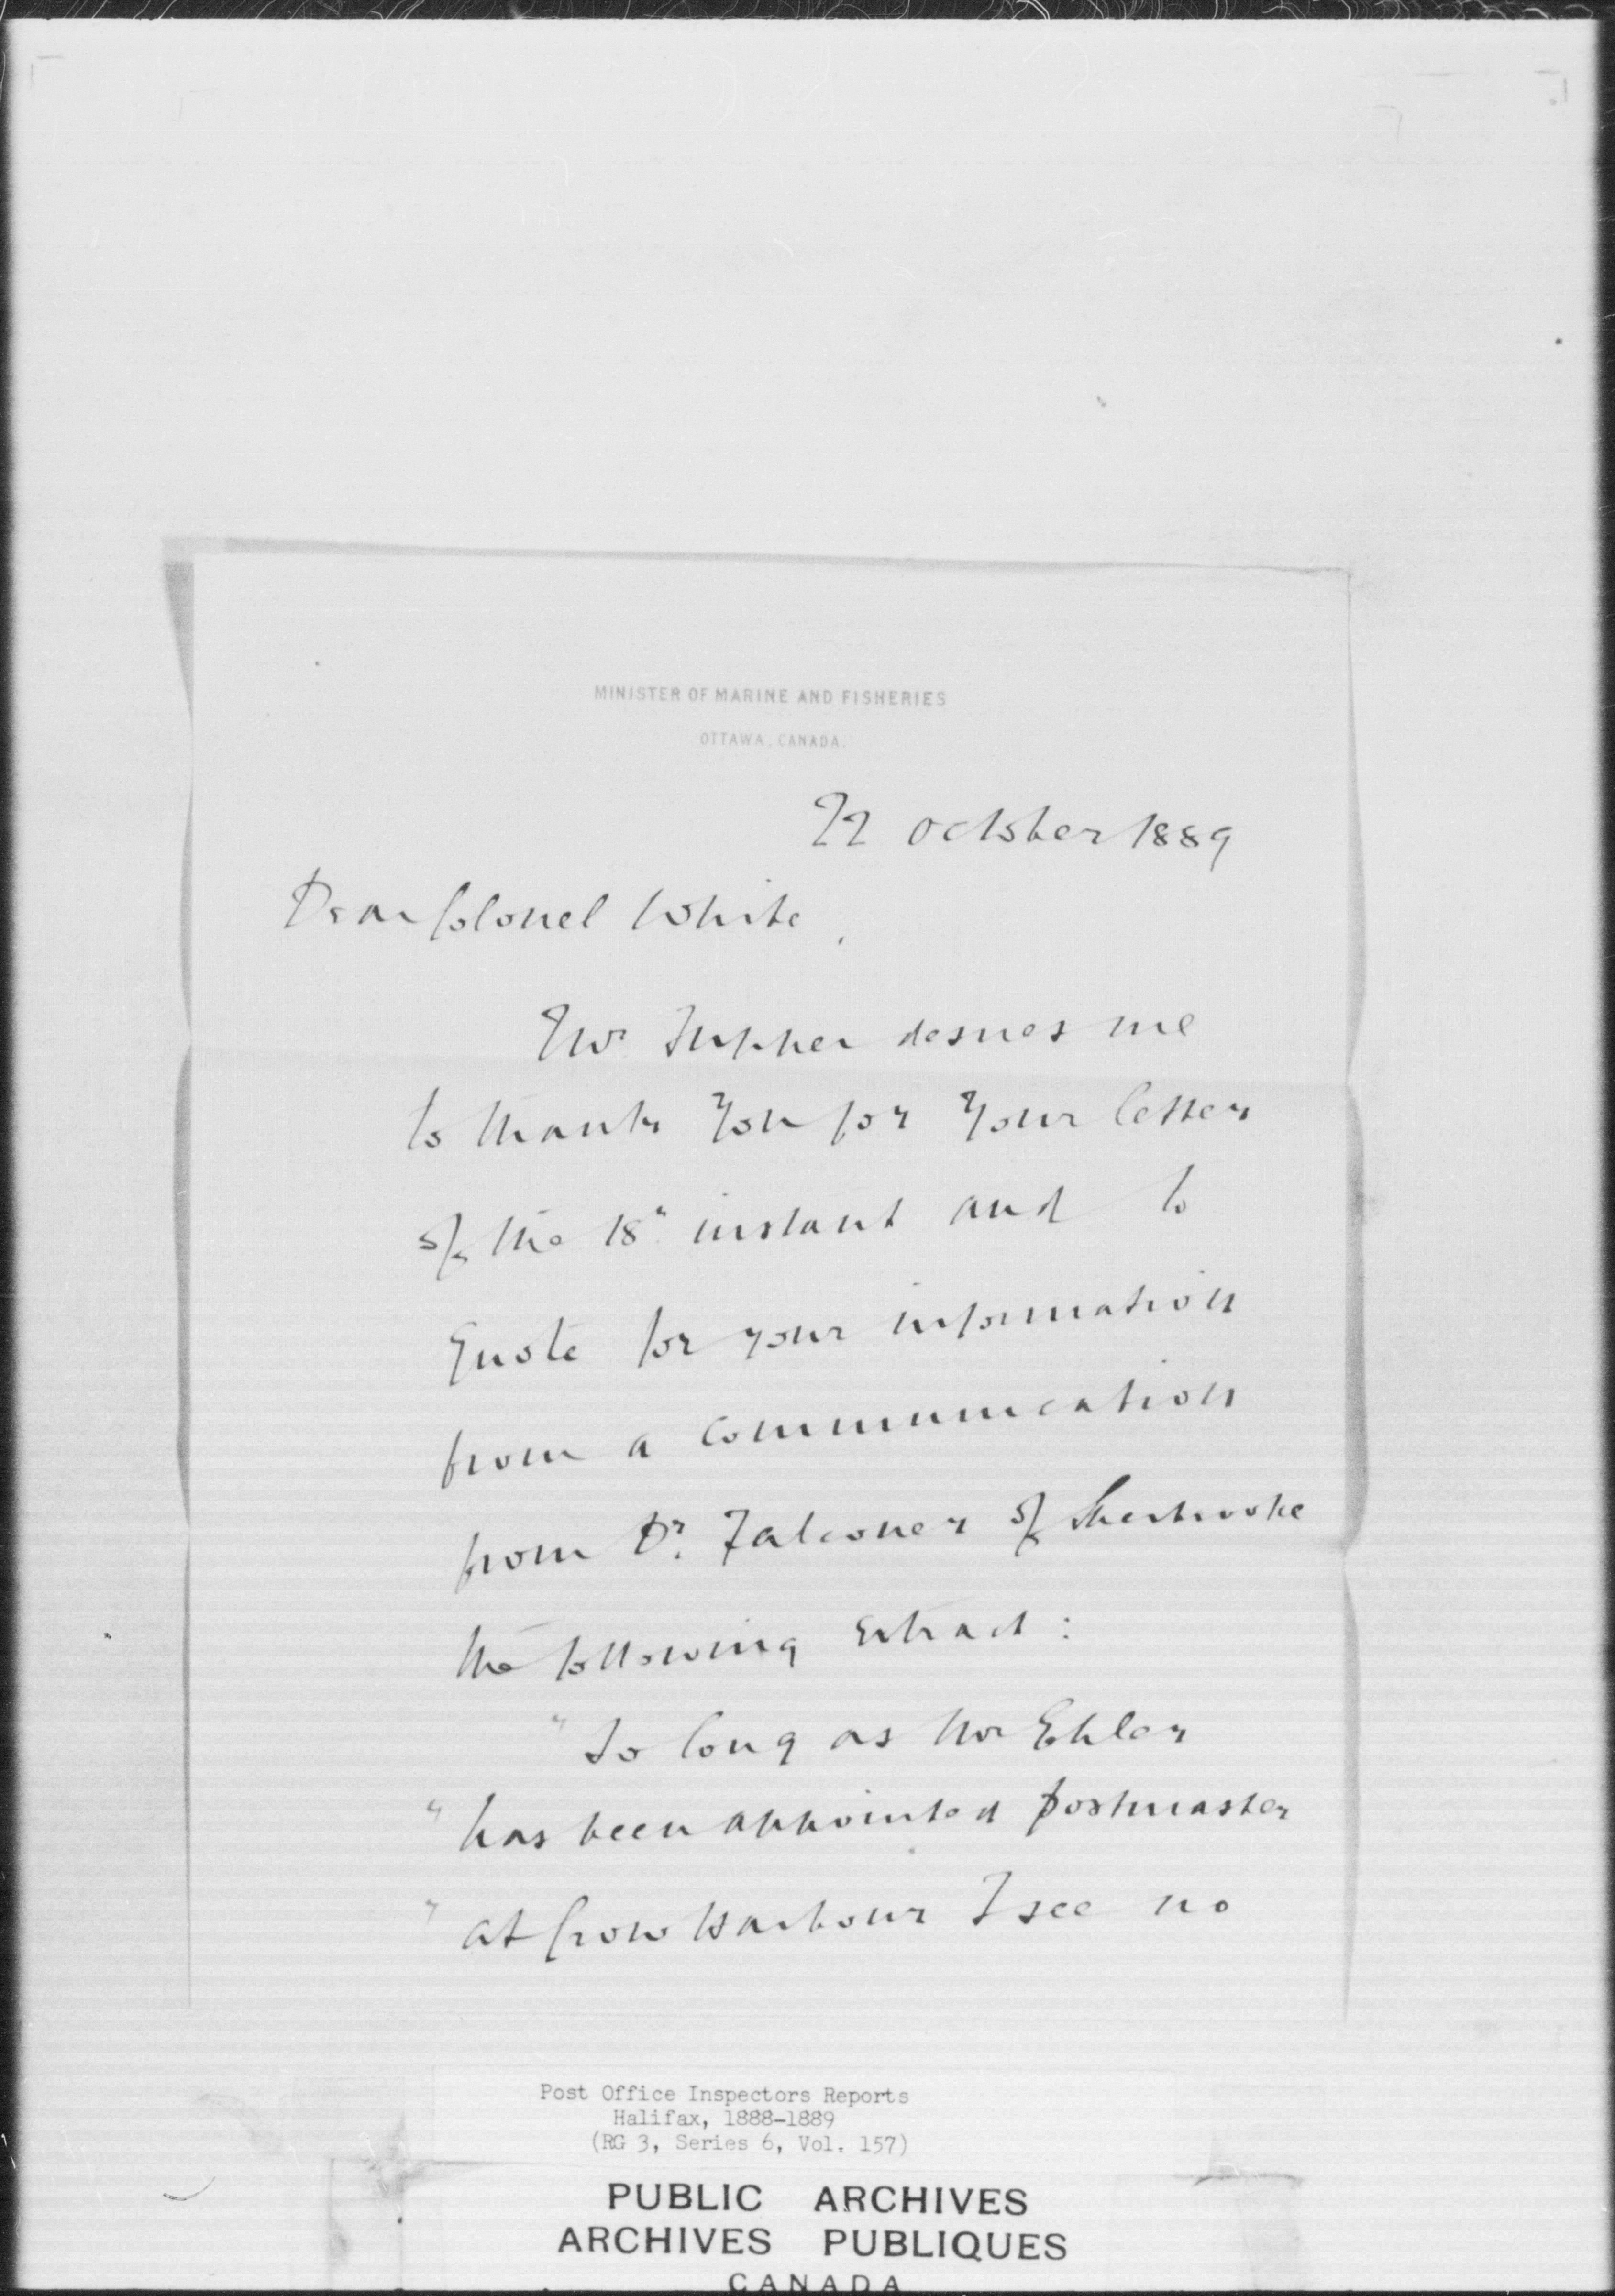 MINISTER OF MARINE AND FISHERIES
OTTAWA, CANADA.
22 October 1889
Dear Colonel White,
Mr. Tupper desires me
to thank you for your letter
of the 18" instant and to
quote for your information
from a communication
from Dr. Falconer of Sherbrooke
the following extract:
"So long as Mr Ehler
"has been appointed postmaster
"at Crow Harbour I see no
Post Office Inspectors Reports
Halifax, 1888-1889
(RG 3, Series 6, Vol. 157)
PUBLIC ARCHIVES
ARCHIVES PUBLIQUES
CANADA